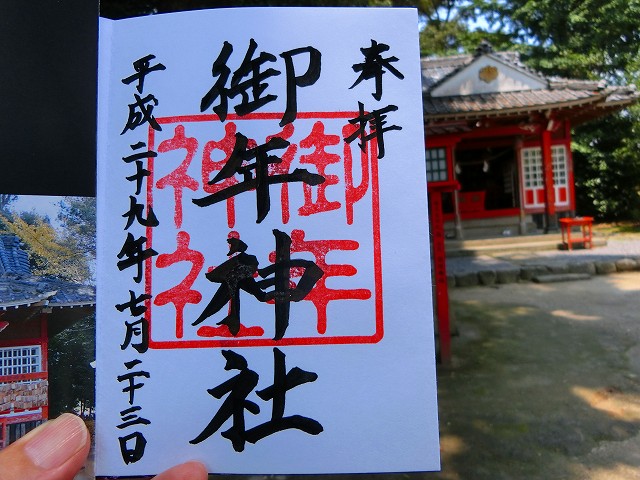 奉拝
御年神社
平成二十九年七月二十三日
御年
神社